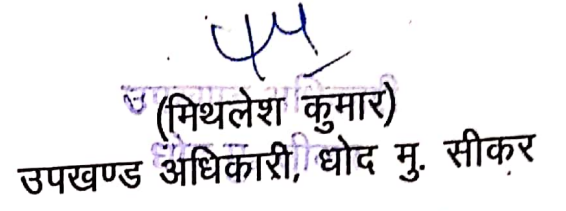 (मिथलेश कुमार)
उपखण्ड अधिकारी, धोद मु. सीकर